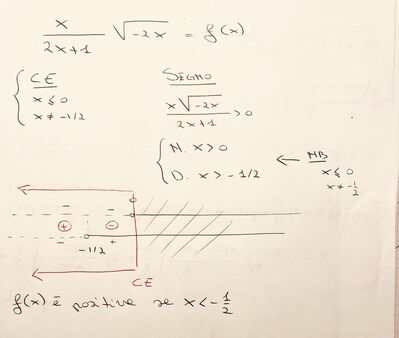 x/(2x+1) √-2x = f(x)
CE
x ≤ 0
x ≠ -1/2
SEGNO
x√-2x/(2x+1) > 0
N. x > 0
D. x > -1/2
← NB
x ≤ 0
x ≠ -1/2
- - 0
⊕ ⊖
- +
-1/2
CE
f(x) è positive se x < -1/2